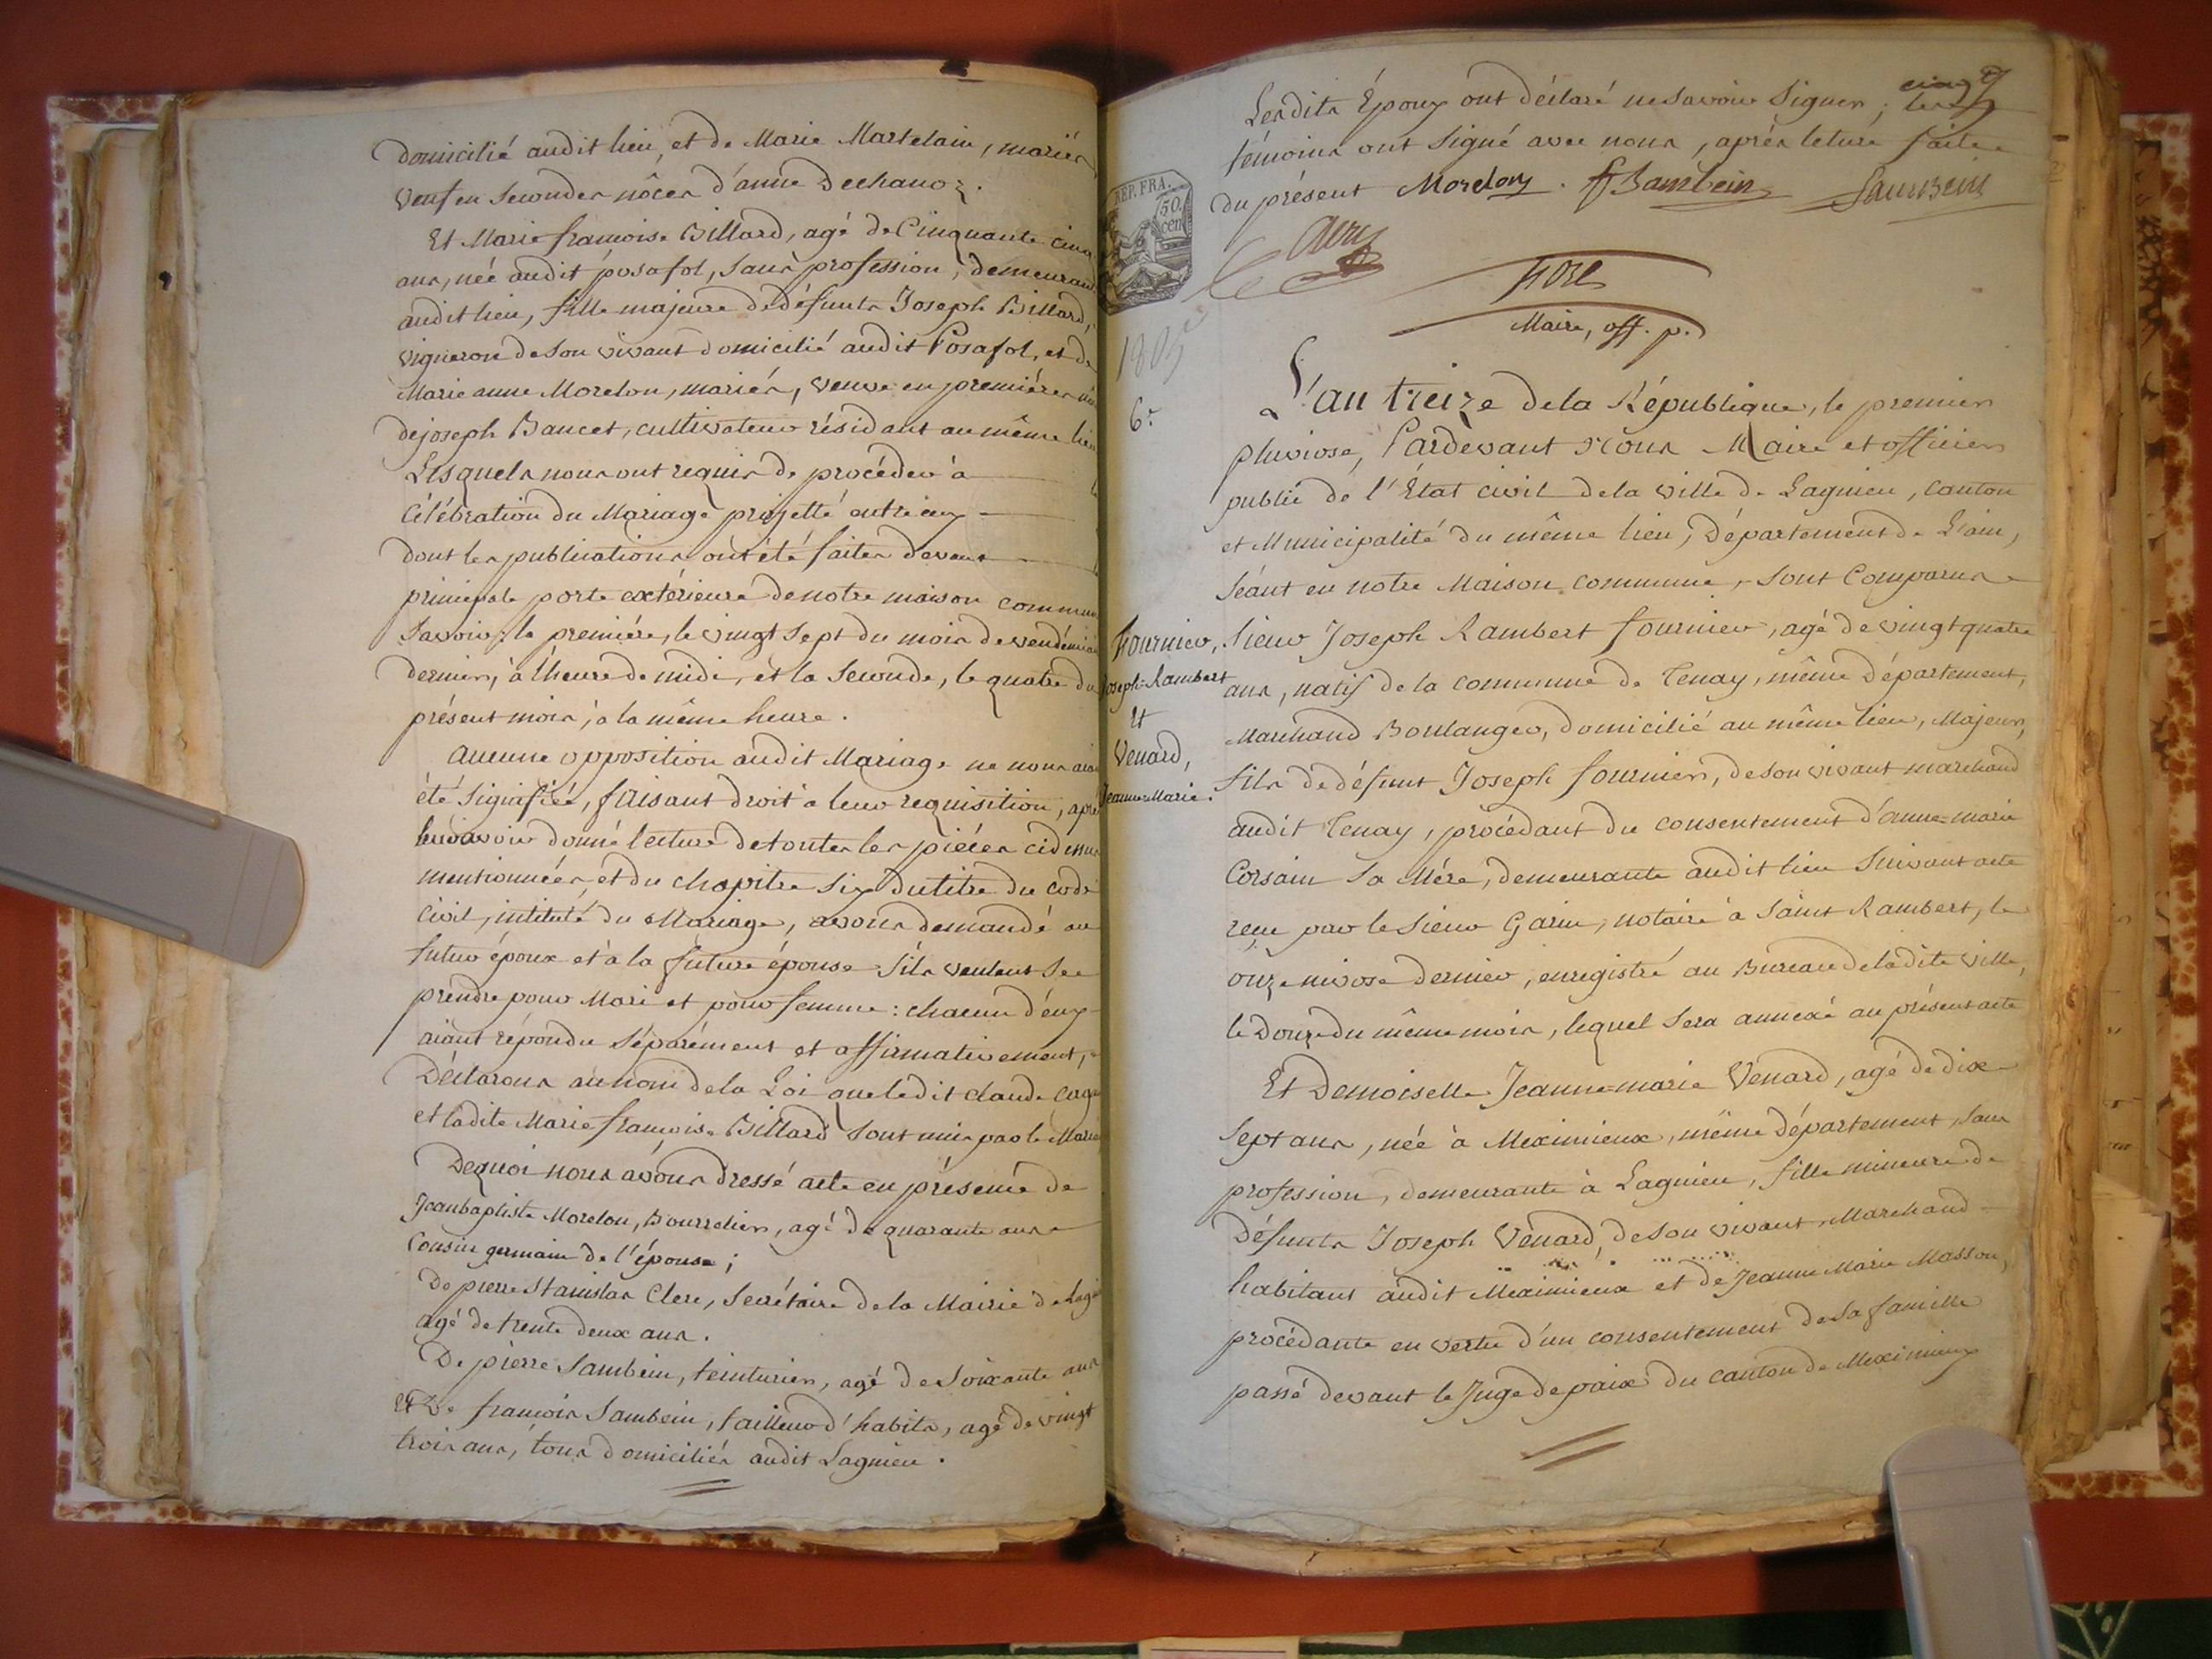 domicilié audit lieu, et de Marie Martelain, mariés
veuf en secondes nôces d'anne Dechanoz.
Et Marie françoise Billard, agé de Cinquante cinq
ans, née audit posafol, sans profession, demeurant
audit lieu, fille majeure de défunts Joseph Billard,
vigneron de son vivant domicilié audit Posafol, et de
Marie anne Morelon, mariés, veuve en premières
de joseph Baucet, cultivateur résidant au même lieu
Lesquels nous ont requis de procéder à
célébration du Mariage projetté entre eux
dont les publications ont été faites devant
principale porte extérieure de notre maison commune
Savoir: la première, le vingt sept du mois de vendémiai
dernier, à l'heure de midi, et la seconde, le quatre du
présent mois, à la même heure.
Aucune opposition audit Mariage ne nous aiant
été signifiée, faisant droit à leur requisition, après
leur avoir donné lecture de toutes les pièces cidessus
mentionnées, et du chapitre six du titre du code
civil, intitulé du Mariage, avons demandé au
futur époux et à la future épouse s'ils veulent se
prendre pour Mari et pour femme: chacun d'eux
aiant répondu séparément et affirmativement,
Déclarons au nom de la Loi que ledit claude
et ladite Marie françoise Billard sont unis par le Maria
De quoi nous avons dressé acte en présence de
Jeanbaptiste Morelon, Bourrelier, agé de quarante ans
Cousin germain de l'épouse;
De pierre Stanislas Clerc, Secrétaire de la Mairie de Lagni
agé de trente deux ans.
De pierre Sambein, teinturier, agé de Soixante ans
Et De françois Sambein, tailleur d'habits, agé de vingt
trois ans, tous domiciliés audit Lagnieu.
cinq
Lesdits Époux ont déclaré ne savoir signer; les
témoins ont signé avec nous, après leture faite
du présent Morelon. f Sambein Sambein
REP. FRA.
50.
cen
Maire, off. p.
1805
6.e
L'an treize de la République, le premier
pluviose, Pardevant Nous Maire et officier
public de l'État civil de la ville de Lagnieu, canton
et Municipalité du même lieu, Département de L'ain,
séant en notre Maison commune, sont Comparus
Fournier,
Joseph-Rambert
Et
Venard,
Jeanne-Marie.
Sieur Joseph Rambert fournier, agé de vingt quatre
ans, natif de la commune de Tenay, même Département,
Marchand Boulanger, domicilié au même lieu, Majeur,
fils de défunt Joseph fournier, de son vivant marchand
audit Tenay, procédant du consentement d'anne=marie
Corsain sa Mère, demeurante audit lieu suivant acte
reçu par le sieur Garin, notaire à Saint Rambert, le
onze nivose dernier, enregistré au Bureau de ladite ville,
le Douze du même mois, lequel sera annexé au présent acte
Et Demoiselle Jeanne=marie Venard, agé de dix
Sept ans, née à Meximieux, même département, sans
profession, demeurante à Lagnieu, fille mineure de
Défunts Joseph Venard, de son vivant Marchand
habitant audit Meximieux et de Jeanne Marie Masson,
procédante en vertu d'un consentement de sa famille
passé devant le Juge de paix du canton de Meximieux